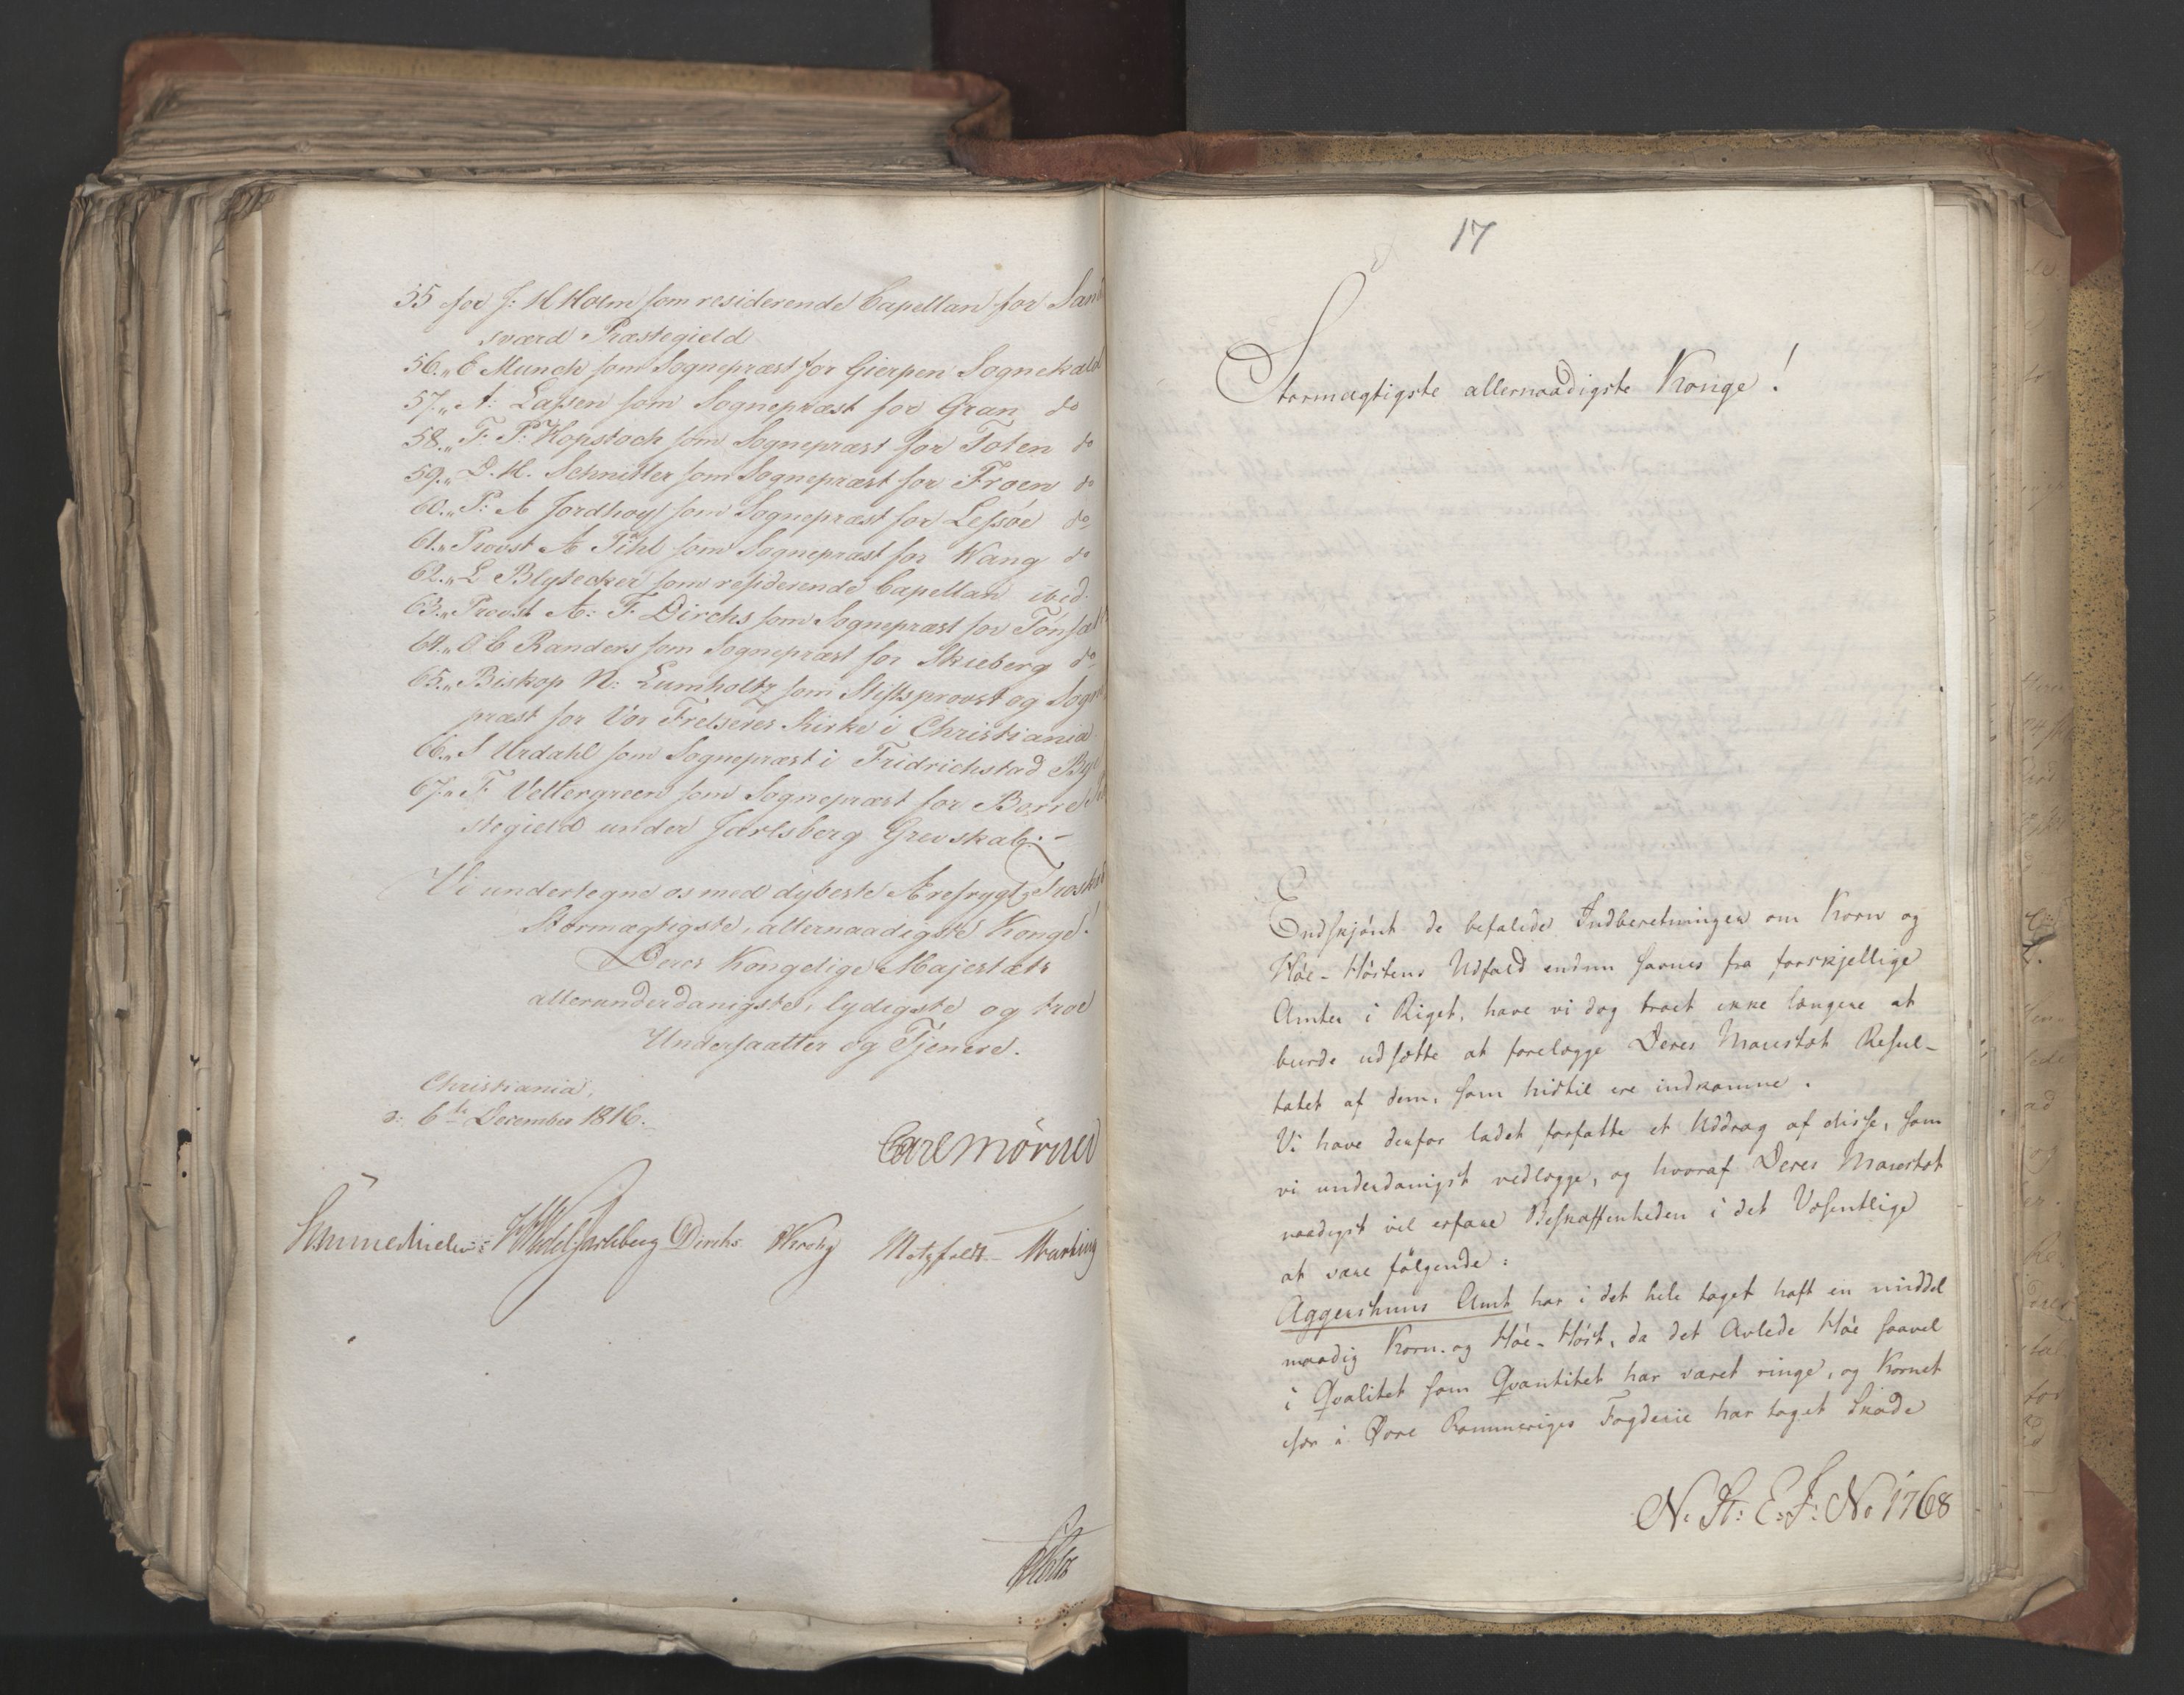 55 for J: H Holm som residerende Capellan for Sand
sværd Præstegield
56. „ E Munch som Sognepræst for Gierpen Sognekald
57. „ A: Lassen som Sognepræst for Gran do
58. „ F: P: Kopstock som Sognepræst for Toten do
59. „ D. H. Schnitler som Sognepræst for Froen do
60. „ P: A Jordhøy som Sognepræst for Lessøe do
61. „ Provst A Pihl som Sognepræst for Wang do
62. „ L Blytecker som residerende Capellan ibed.
63. „ Provst A: F. Dircks som Sognepræst for Tønsæt
64. „ O C Randers som Sognepræst for Skieberg do
65. „ Biskop N: Lumholtz som Stiftsprovst og Sogne
præst for Vor Frelseres Kirke i Christiania
66. „ S Urdahl som Sognepræst i Fridrichstad Bye
67. „ F. Vettergreen som Sognepræst for Borre
stegield under Jarlsberg Grevskab. –
Vi undertegne os med dybeste Ærefrygt
Stormægtigste, allernaadigste Konge!
Deres Kongelige Majestæts
allerunderdanigste, lydigste og troe
Undersaatter og Tjenere.
Christiania,
d: 6te December 1816.
Carl Mörner
Sommerhielm Wedel Jarlsberg Dircks Krog Motzfeldt Mariboe
Holst
17
Stormægtigste allernaadigste Konge!
Endskjønt de befalede Indberetninger om Korn og
Høe-Høstens Udfald endnu savnes fra forskjellige
Amter i Riget, have vi dog troet ikke længere at
burde udsætte at forelægge Deres Majestæt Resul-
tatet af dem, som hidtil ere indkomne.
Vi have derfor ladet forfatte et Uddrag af disse, som
vi underdanigst vedlægge, og hvoraf Deres Majestæt
naadigst vil erfare Beskaffenheden i det Væsentlige
at være følgende:
Aggershuus Amt har i det hele taget haft en middel
maadig Korn- og Høe-Høst, da det avlede Høe saavel
i Qvalitet som Qvantitet har været ringe, og Kornet
især i Øvre Rommeriges Fogderie har taget Skade
N. St: E: J: No 1768